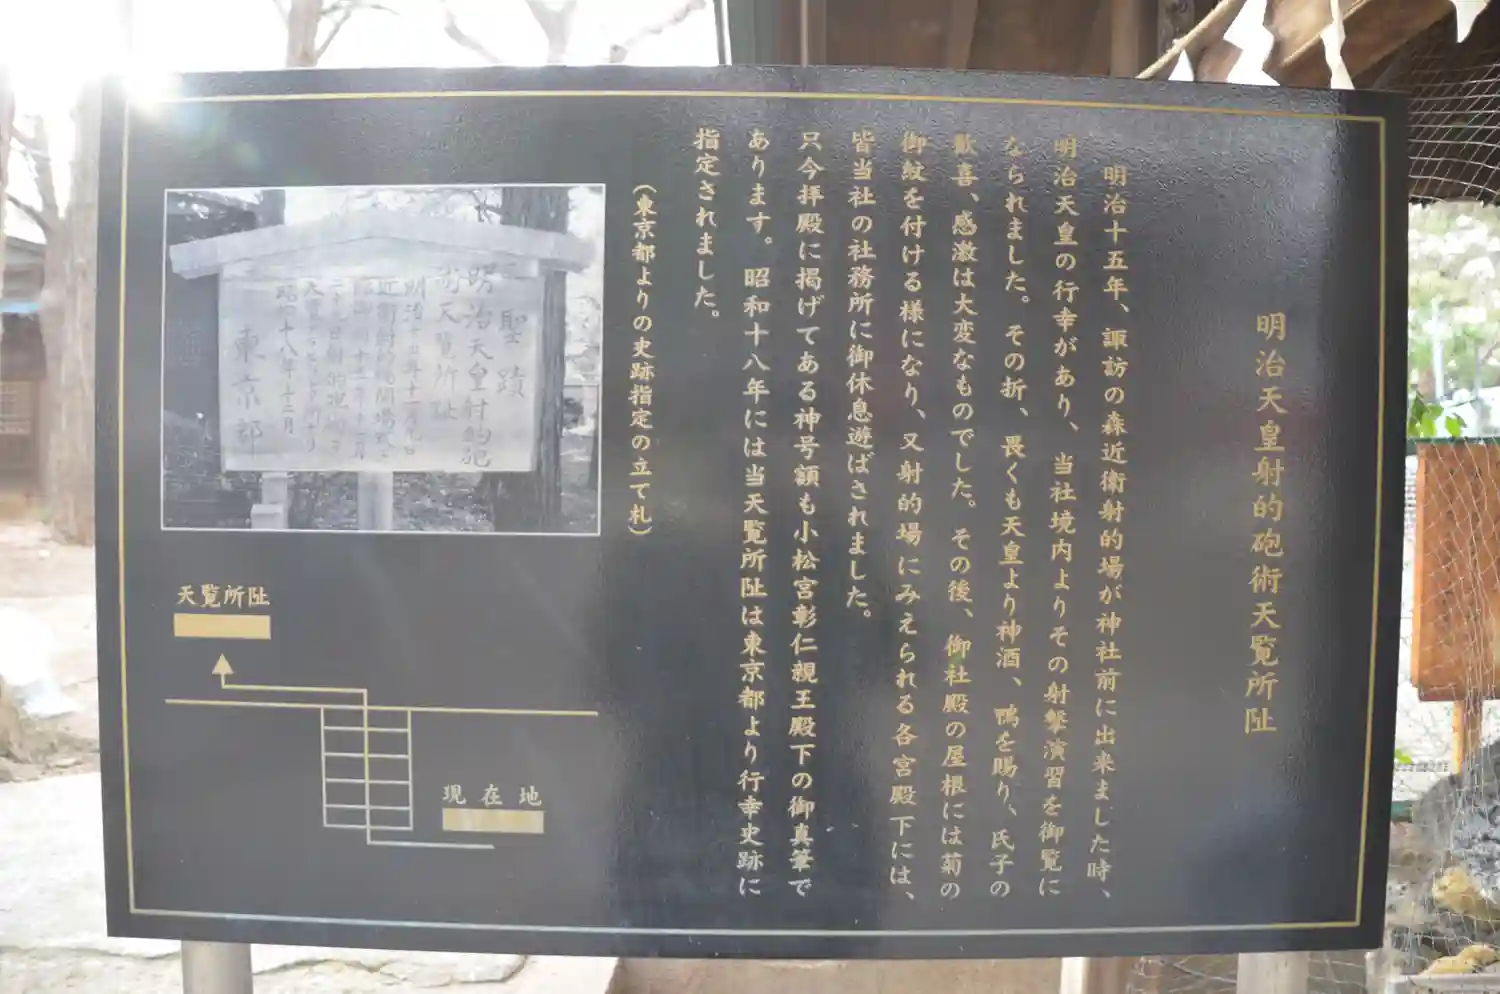 明治天皇射的砲術天覧所址
明治十五年、諏訪の森近衛射的場が神社前に出来ました時、
明治天皇の行幸があり、当社境内よりその射撃演習を御覧に
なられました。その折、畏くも天皇より神酒、鴨を賜り、氏子の
歓喜、感激は大変なものでした。その後、御社殿の屋根には菊の
御紋を付ける様になり、又射的場にみえられる各宮殿下には、
皆当社の社務所に御休息遊ばされました。
只今拝殿に掲げてある神号額も小松宮彰仁親王殿下の御真筆で
あります。昭和十八年には当天覧所址は東京都より行幸史跡に
指定されました。
(東京都よりの史跡指定の立て札)
聖蹟
明治天皇射的砲
術天覧所址
東京都
天覧所址
現在地